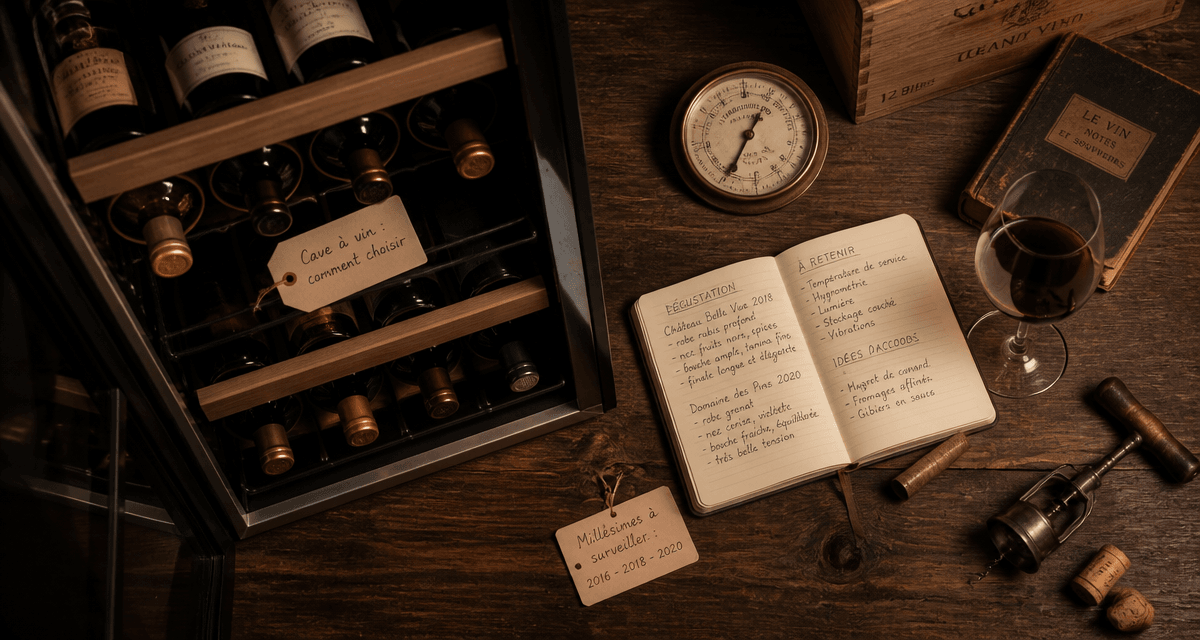 Cave à vin :
comment choisir
Millésimes à
surveiller :
2016 - 2018 - 2020
DÉGUSTATION
Château Belle Vue 2018
- robe rubis profond
- nez fruits noirs, épices
- bouche ample, tanins fins
- finale longue et élégante
Domaine des Pins 2020
- robe grenat
- nez cerise, violette
- bouche fraîche, équilibrée
- très belle tension
À RETENIR
- Température de service
- Hygrométrie
- Lumière
- Stockage couché
- Vibrations
IDÉES D'ACCORDS
- Magret de canard
- Fromages affinés
- Gibiers en sauce
LE VIN
NOTES
ET SOUVENIRS
12 Btles